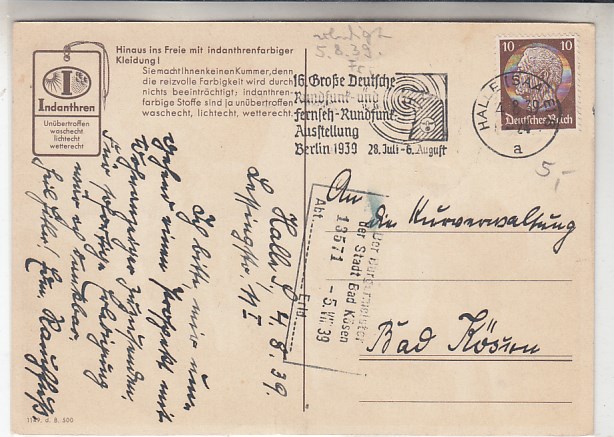 Hinaus ins Freie mit indanthrenfarbiger
Kleidung!
Sie macht Ihnen keinen Kummer, denn
die reizvolle Farbigkeit wird durch
nichts beeinträchtigt; indanthren-
farbige Stoffe sind ja unübertroffen
waschecht, lichtecht, wetterecht.
I
Indanthren
Unübertroffen
waschecht
lichtecht
wetterecht
5.8.39.
16. Große Deutsche
Rundfunk- und
Fernseh-Rundfunk-
Ausstellung
Berlin 1939 28. Juli-6. August
10 10
Deutsches Reich
HALLE (SAALE)
a
5,-
An
die Kurverwaltung
Bad Kösen
Der Bürgermeister
der Stadt Bad Kösen
13571 - 5. VIII 39
Abt. Erld.
Halle S, 4.8.39.
Lessingstr.
Ich bitte, mir um-
gehend einen Prospekt mit
Wohnungs
zuzusenden.
Für sofortige Erledigung
wäre ich dankbar.
Heil Hitler!
1149. d. 8. 500